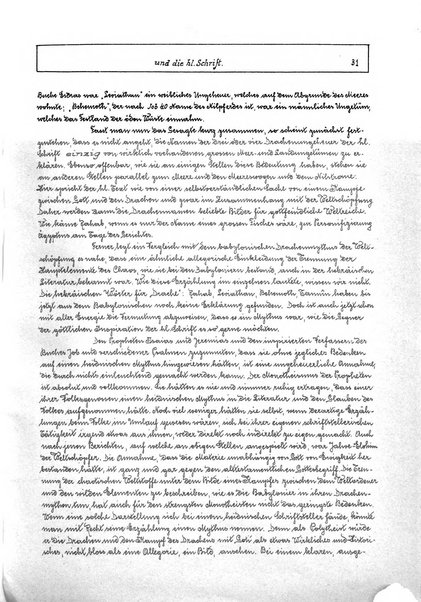 und die hl. Schrift. 31
Buche Esdras war „Leviathan“ ein weibliches Ungeheuer, welches auf dem Abgrunde des Meeres
wohnte; „Behemoth“, der nach Job 40 Name des Nilpferdes ist, war ein männliches Ungetüm,
welches das Festland der öden Wüste einnahm.
Faßt man nun das Gesagte kurz zusammen, so scheint zunächst fest-
zustehen, dass es nicht angeht, die Namen der drei oder vier Drachenungeheuer der hl.
Schrift einzig von wirklich vorhandenen grossen Meer- und Landungetümen zu er-
klären. Ebenso offenbar, wie sie an einigen Stellen diese Bedeutung haben, stehen sie
an anderen Stellen parallel zum Meere und den Meereswogen und dem Nilstrome.
Hier spricht der hl. Text wie von einer selbstverständlichen Sache von einem Kampfe
zwischen Gott und den Drachen und zwar im Zusammenhang mit der Weltschöpfung.
Daher werden dann die Drachennamen beliebte Bilder für gottfeindliche Weltreiche.
Wie käme Rahab, wenn es nur der Name eines grossen Fisches wäre, zur Personifizierung
Ägyptens am Tage des Gerichtes.
Ferner legt ein Vergleich mit dem babylonischen Drachenmythus der Welt-
schöpfung es nahe, dass eine ähnliche allegorische Einkleidung der Trennung der
Hauptelemente des Chaos, wie sie bei den Babyloniern bestand, auch in der hebräischen
Literatur bekannt war. Wie diese Erzählung im einzelnen lautete, wissen wir nicht.
Die hebräischen Wörter für „Drache“: Rahab, Leviathan, Behemoth, Tannin haben bis
jetzt aus dem Babylonischen noch keine Erklärung gefunden. Doch ist auch jetzt schon
mit aller Energie die Vermutung abzuweisen, dass es ein Mythus war, wie die Gegner
der göttlichen Inspiration der hl. Schrift es so gerne möchten.
Den Propheten Isaias und Jeremias und den inspirierten Verfassern des
Buches Job und verschiedener Psalmen zuzumuten, dass sie ohne jegliches Bedenken
auf einen heidnischen Mythus hingewiesen hätten, ist eine ungeheuerliche Annahme,
die durch nichts einleuchtend gemacht werden kann. Der Monotheismus der Propheten
ist absolut und vollkommen. Sie hätten es nie und nimmer ruhig ertragen, dass einer
ihrer Volksgenossen einen heidnischen Mythus in die Literatur und den Glauben des
Volkes aufgenommen hätte. Noch viel weniger hätten sie selbst, wenn derartige Erzäh-
lungen beim Volke im Umlauf gewesen wären, sich bei ihrer eigenen schriftstellerischen
Tätigkeit irgend etwas aus ihnen, weder direkt noch indirekt zu eigen gemacht. Auch
nach jenen Berichten, auf welche an den Stellen angespielt wird, war Jahve Elohim
der Weltschöpfer. Die Annahme, dass die Materie unabhängig von Gott von Ewigkeit her
bestanden hätte, ist ganz und gar gegen den alttestamentlichen Gottesbegriff. Die Tren-
nung der chaotischen Weltstoffe unter dem Bilde eines Kampfes zwischen dem Weltordner
und den wilden Elementen zu beschreiben, wie es die Babylonier in ihrem Drachen-
mythus tun, hat auch für den strengsten Monotheisten nicht das geringste Bedenken.
Wenn eine solche Darstellung sich bei einem heidnischen Schriftsteller fände, könnte
man mit Recht seine Erzählung einen Mythus nennen. Denn als Polytheist würde er
die Drachen und den Kampf des Drachen mit Gott als etwas Wirkliches und Histori-
sches, nicht bloss als eine Allegorie, ein Bild, ansehen. Bei einem klaren, ausge-